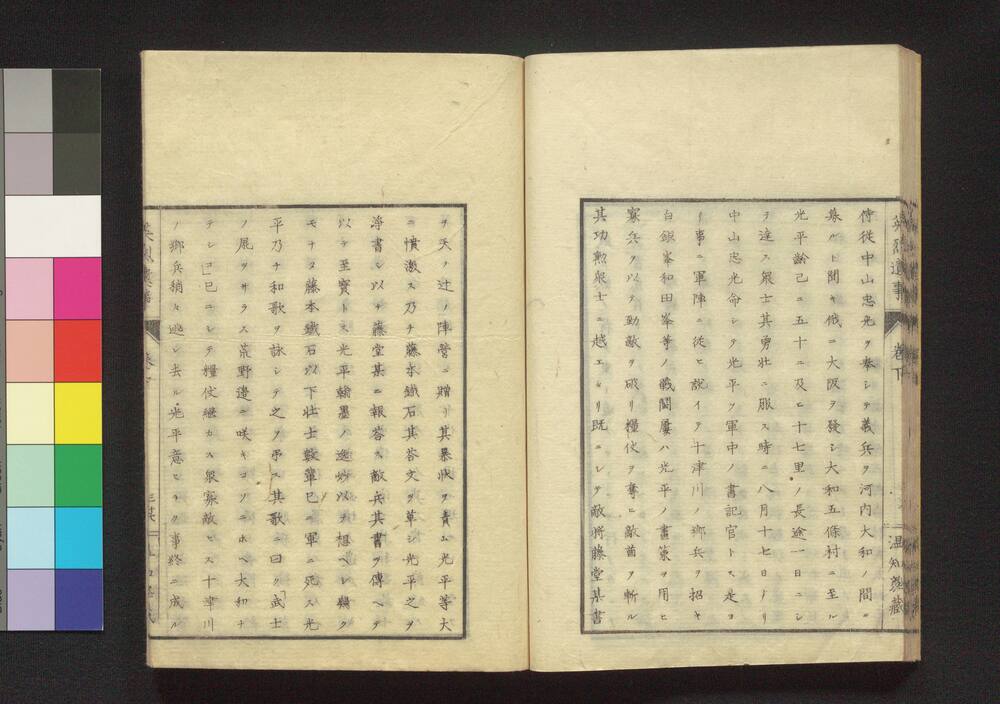 英烈遺事
卷下
温知叢藏
侍從中山忠光ヲ奉シテ義兵ヲ河内大和ノ間ニ
募ルト聞キ俄ニ大阪ヲ發シ大和五條村ニ至ル
光平齡已ニ五十ニ及ヒ十七里ノ長途一日ニシ
テ達ス衆士其勇壯ニ服ス時ニ八月十七日ナリ
中山忠光命シテ光平ヲ軍中ノ書記官トス是ヨ
リ事ニ軍陣ニ從ヒ説イテ十津川ノ郷兵ヲ招キ
白銀峯和田峯等ノ戰鬪屢ハ光平ノ畫策ヲ用ヒ
寡兵ヲ以テ勁敵ヲ破リ糧仗ヲ奪ヒ敵酋ヲ斬ル
其功勲衆士ニ越エタリ既ニシテ敵將藤堂某書
ヲ天ノ辻ノ陣營ニ贈リ其暴狀ヲ責ム光平等大
ニ憤激ス乃チ藤本鐵石其答文ヲ草シ光平之ヲ
淨書シ以テ藤堂某ニ報答ス敵兵其書ヲ傳ヘテ
以テ至寶トス光平翰墨ノ逸妙以テ想ヘシ嶺ク
モナク藤本鐵石以下壯士數輩已ニ軍ニ死ス光
平乃チ和歌ヲ詠シテ之ヲ弔ス其歌ニ曰ク「武士
ノ屍ヲサラス荒野邊ニ咲キコソニホヘ大和ナ
テシコ」已ニシテ糧仗繼カス衆寡敵セス十津川
ノ郷兵稍々逃シ去ル光平意ヒラク事終ニ成ル